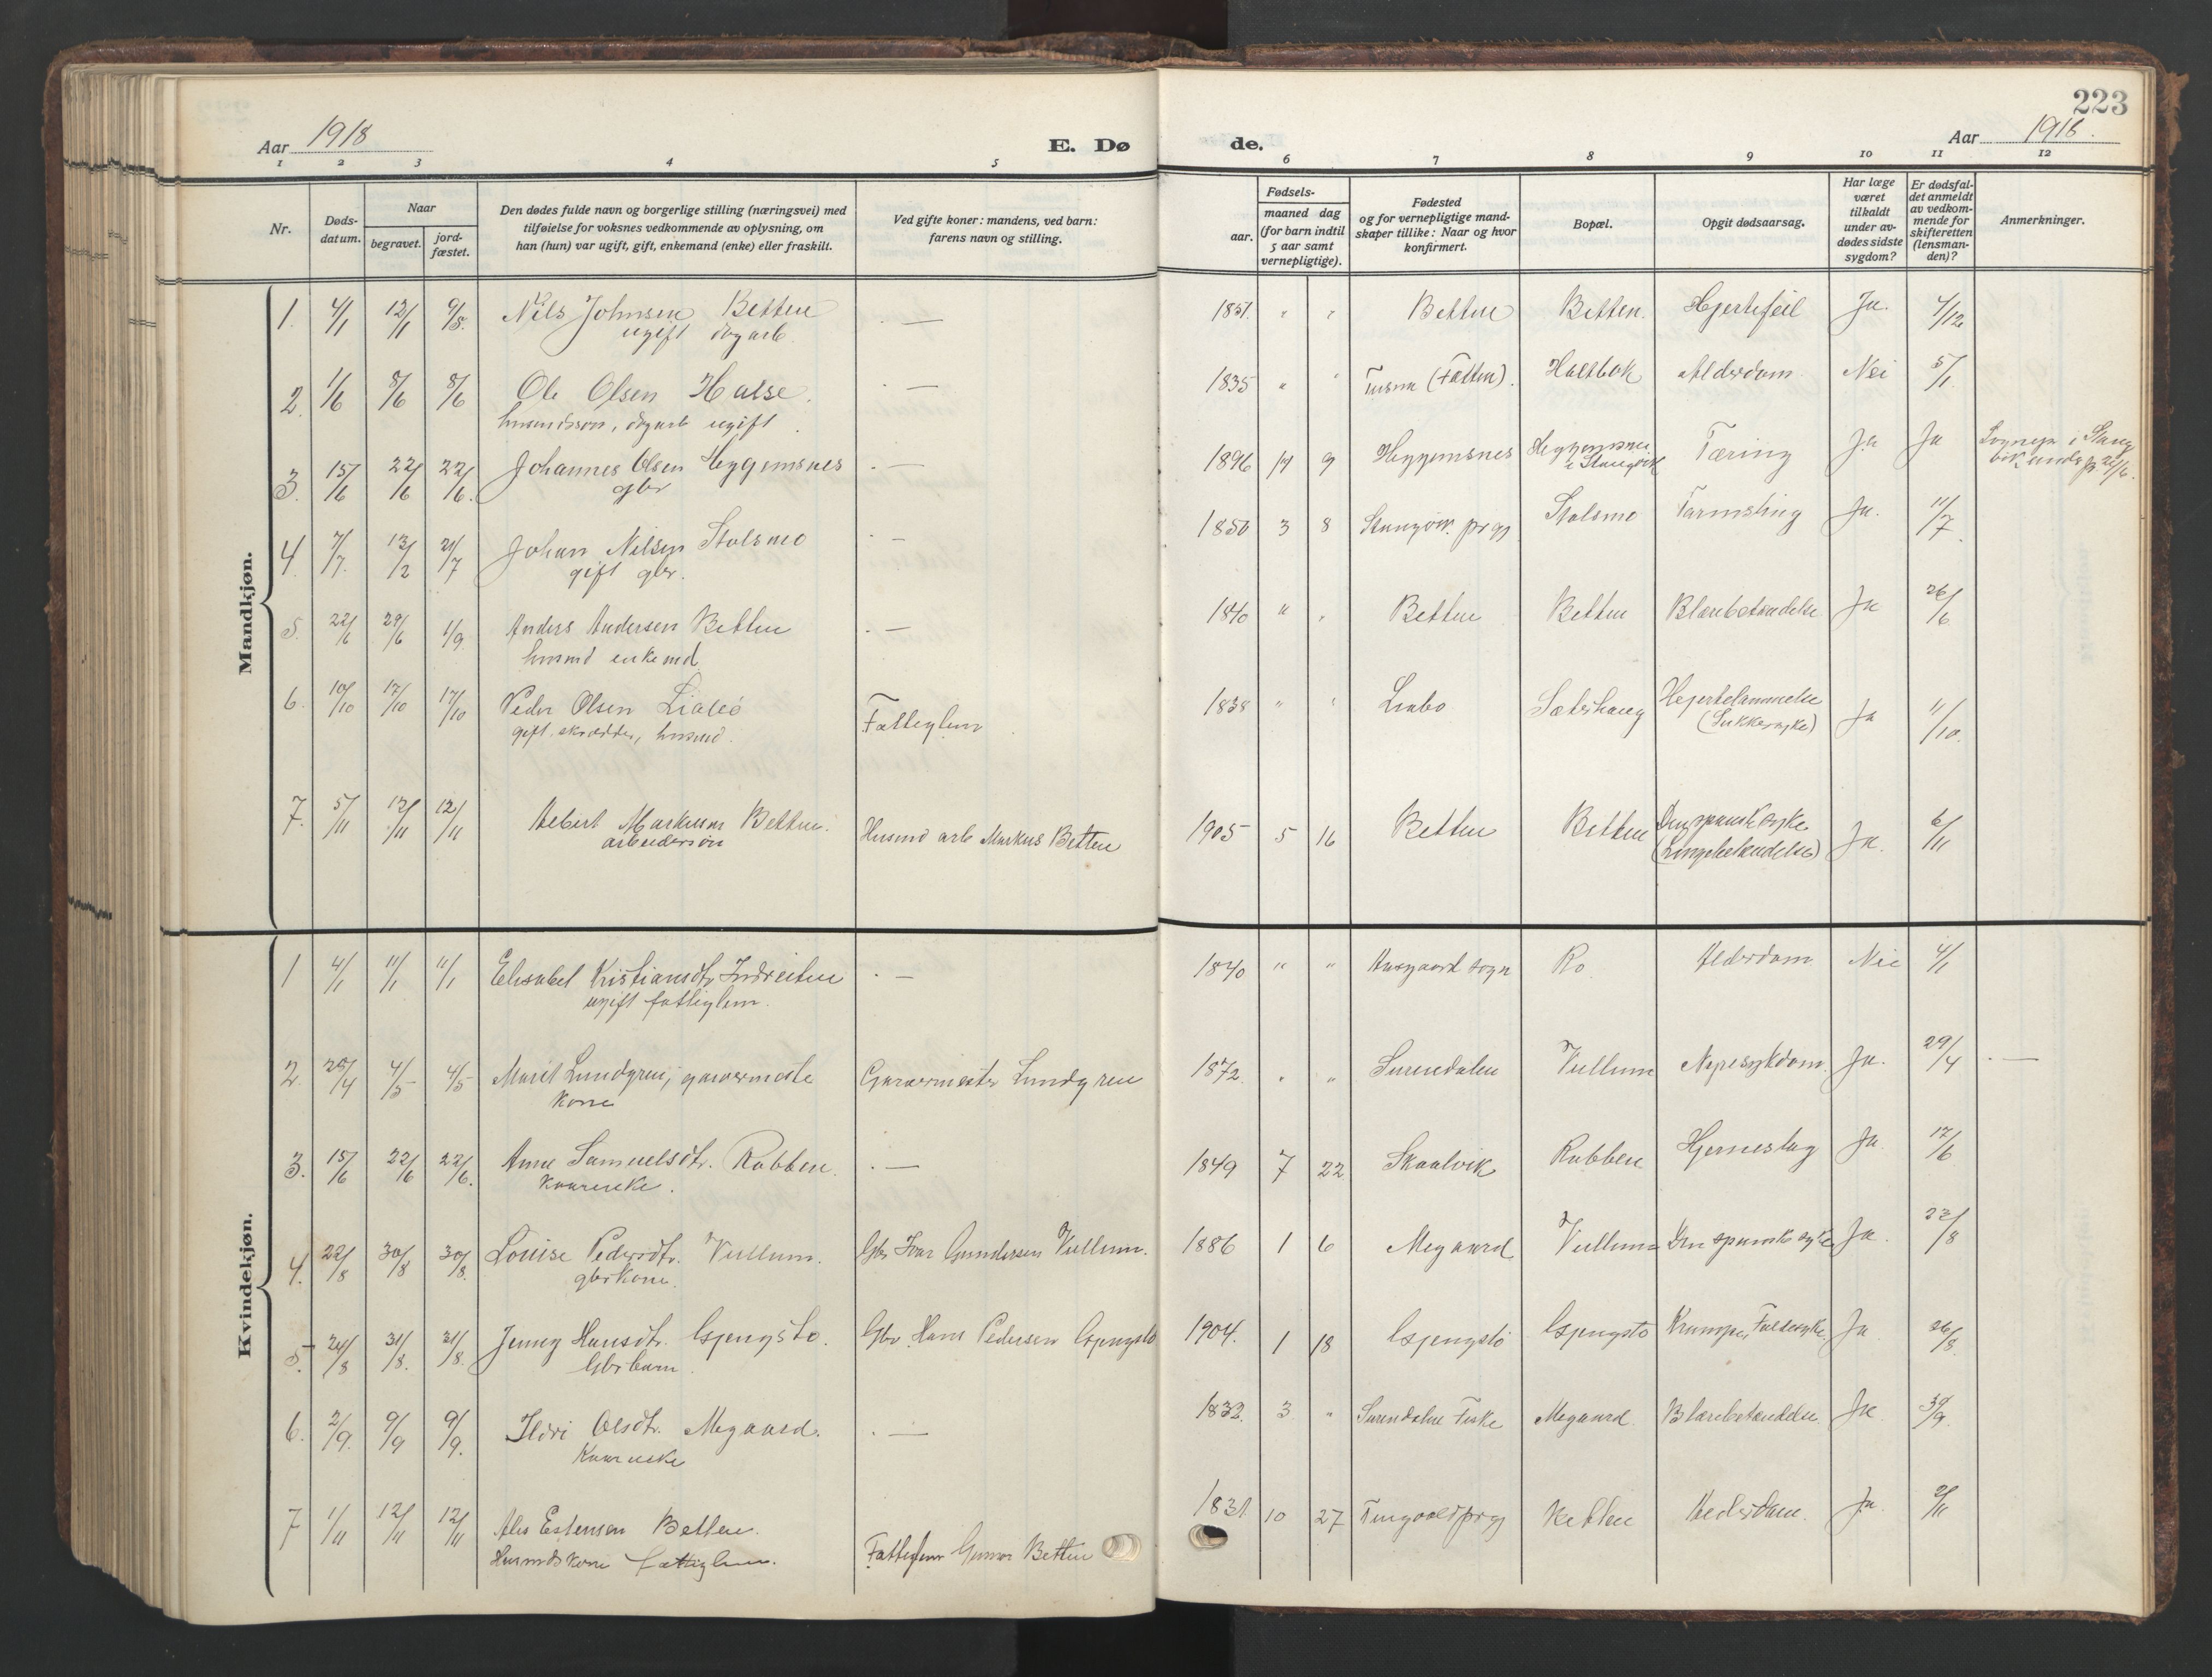 223
Aar 1918
E. Dø
de.
Aar 1918.
1 2 3 4 5
6 7 8 9 10 11 12
Nr.
Døds-
datum.
Naar
begravet.
jord-
fæstet.
Den dødes fulde navn og borgerlige stilling (næringsvei) med
tilføielse for voksnes vedkommende av oplysning, om
han (hun) var ugift, gift, enkemand (enke) eller fraskilt.
Ved gifte koner: mandens, ved barn:
farens navn og stilling.
Fødsels-
aar.
maaned dag
(for barn indtil
5 aar samt
vernepligtige).
Fødested
og for vernepligtige mand-
skaper tillike: Naar og hvor
konfirmert.
Bopæl.
Opgit dødsaarsag.
Har læge
været
tilkaldt
under av-
dødes sidste
sygdom?
Er dødsfal-
det anmeldt
av vedkom-
mende for
skifteretten
(lensman-
den)?
Anmerkninger.
Mandkjøn.
1. 4/1 12/1 9/5. Nils Johnsen Betten — 1851. " " Betten Betten. Hjertefeil Ja. 4/12
ugift dagarb.
2. 1/6 8/6 8/6 Ole Olsen Halse. — 1835 " " (Fatten). Holtbak Alderdom Nei 5/1
husmdsson, dagarb ugift.
3. 15/6 22/6 22/6. Johannes Olsen Heggemsnes — 1896 9 Heggemsnes Heggemsnes Tæring Ja Ja
gbr i Stangvik
4. 7/7. 13/2 21/7 Johan Nilsen Stolsmo — 1850 3 8 Stangvik prgj Stolsmo Tarmslyng Ja. 11/7
gift gbr.
5. 22/6 29/6 1/9 Anders Andersen Betten — 1840 " " Betten Betten Blærebetændelse Ja 26/6
husmd enkemd
6. 10/10 17/10 17/10 Peder Olsen Liabø Fattiglem 1838 " " Liabø Sæterhaug Hjertelammelse Ja 11/10.
gift skrædder, husmd. (Sukkersyke)
7. 5/11 12/11 12/11 Markusen Betten. Husmd arb Markus Betten 1905 5 16 Betten Betten Den spanske syke Ja. 6/11
arbeidersøn (Lungebetændelse)
Kvindekjøn.
1 4/1 11/1 11/1 Elisabet Kristiansdtr. Indreiten — 1840 " " Aasgaard sogn Ro Alderdom Nei 4/1
ugift fattiglem.
2. 25/4 4/5 4/5 Marit Lundgren, garvermeste Garvermester Lundgren 1872. " " Surendalen Vullum Nyresykdom. Ja. 29/4 —
kone
3. 15/6 22/6 22/6. Anne Samuelsdtr. Rabben. — 1849 7 22 Skaalvik Rabben Hjerneslag Ja 17/6
Kaarenke.
4. 22/8 30/8 30/8. Louise Pedersdtr. Vullum. Gbr Ivar Gundersen Vullum. 1886 1 6 Megaard Vullum Den spanske syke Ja. 23/8
gbrkone.
5. 24/8 31/8. 31/8. Jenny Hansdtr. Gjengstø. Gbr. Hans Pedersen Gjengstø 1904. 1 18 Gjengstø Gjengstø Krampe, Faldesyke Ja 26/8
Gbrbarn.
6. 2/9. 9/9 9/9. Ildri Olsdtr. Megaard. — 1832. 3 " Surendalen Fiske Megaard. Blærebetændelse Ja 3/9.
Kaarenke
7 1/11 12/11 12/11 Estensen Betten. Fattiglem Gunnar Betten 1831. 10 27 Tingvold prgj Betten Alderdom. Ja. 2/11
Husmdskone fattiglem.